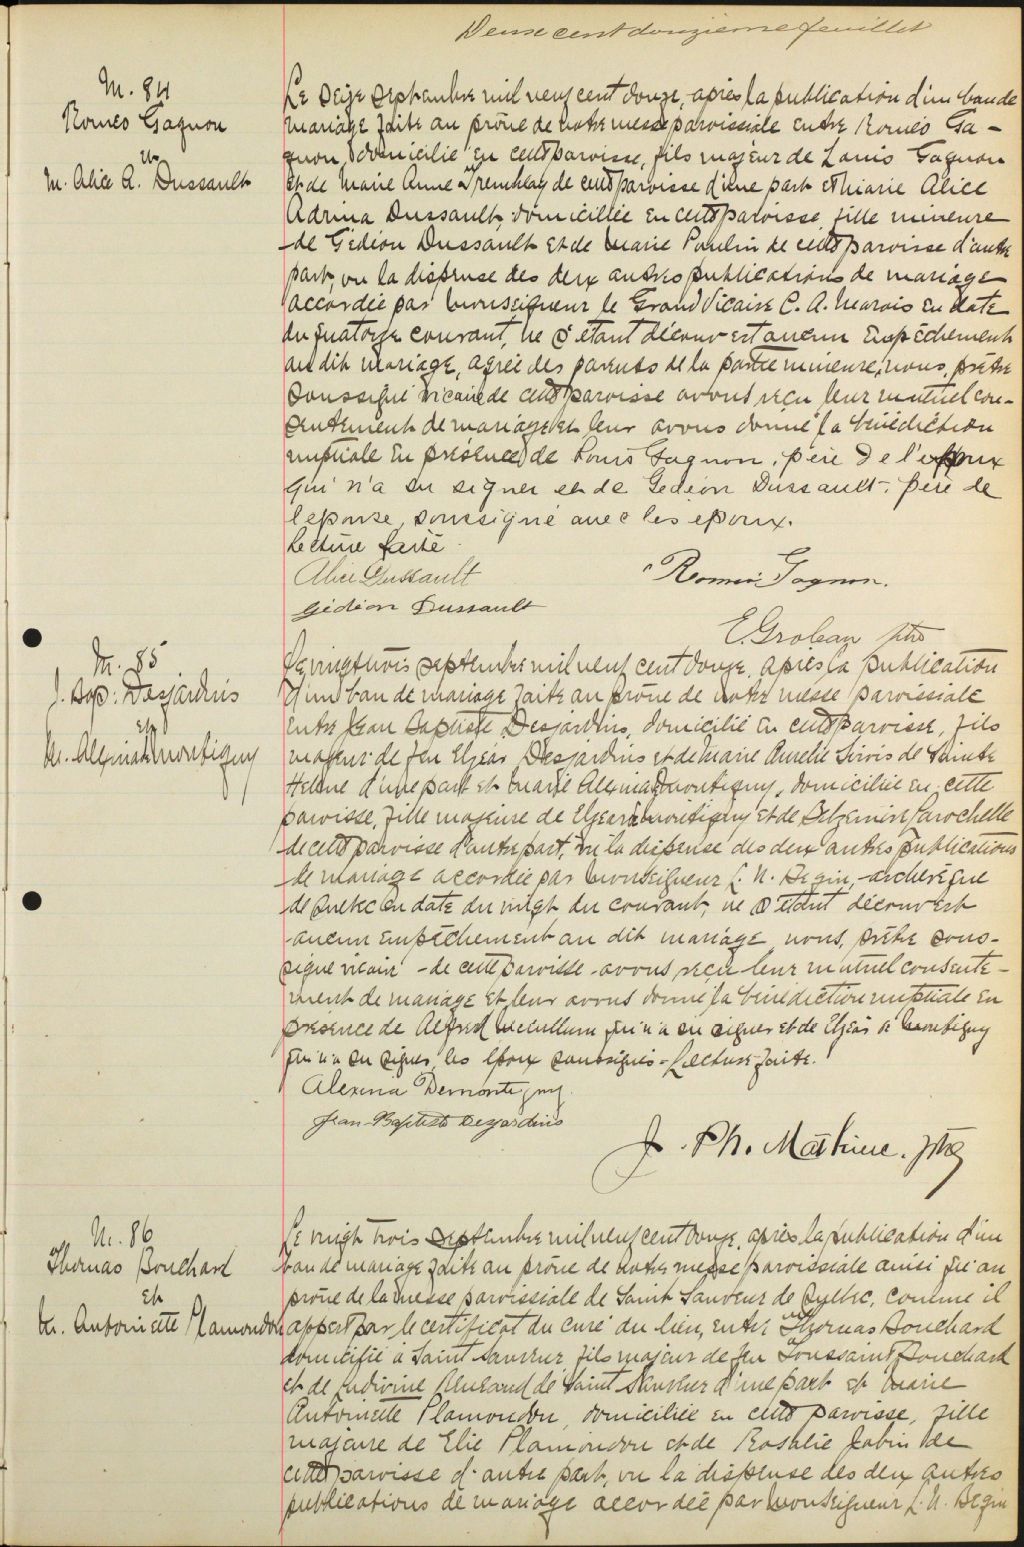 Deux cent douzième feuillet
M. 84
Roméo Gagnon
et
M. Alice A. Dussault
Le seize septembre mil neuf cent douze, après la publication d'un ban de
mariage faite au prône de notre messe paroissiale entre Roméo Ga-
gnon, domicilié en cette paroisse, fils majeur de Louis Gagnon
et de Marie Anne Tremblay de cette paroisse d'une part et Marie Alice
Adrina Dussault domiciliée en cette paroisse, fille mineure
de Gédéon Dussault et de Marie Poulin de cette paroisse d'autre
part, vu la dispense des deux autres publications de mariage
accordée par Monseigneur le Grand Vicaire C. A. Marois en date
du quatorze courant, ne s'étant découvert aucun empêchement
au dit mariage, agréé des parents de la partie mineure, nous, prêtre
soussigné vicaire de cette paroisse avons reçu leur mutuel con-
sentement de mariage et leur avons donné la bénédiction
nuptiale en présence de Louis Gagnon, père de l'époux
qui n'a su signer et de Gédéon Dussault, père de
l'épouse, soussigné avec les époux.
Lecture faite
Alice Dussault
Roméo Gagnon.
Gédéon Dussault
E. Grolean ptre
M. 85
J. Bap: Desjardins
et
M. Alexina de Montigny
Le vingt trois septembre mil neuf cent douze, après la publication
d'un ban de mariage faite au prône de notre messe paroissiale
entre Jean Baptiste Desjardins, domicilié en cette paroisse, fils
majeur de feu Elzéar Desjardins et de Marie Aurélie Sirois de Sainte
Hélène d'une part et Marie Alexina de Montigny, domiciliée en cette
paroisse, fille majeure de Elzéar de Montigny et de Belzémire Larochelle
de cette paroisse d'autre part, vu la dispense des deux autres publications
de mariage accordée par Monseigneur L. N. Bégin, archevêque
de Québec en date du vingt du courant, ne s'étant découvert
aucun empêchement au dit mariage, nous, prêtre sous-
signé vicaire de cette paroisse avons reçu leur mutuel consente-
ment de mariage et leur avons donné la bénédiction nuptiale en
présence de Alfred McCullum qui n'a su signer et de Elzéar de Montigny
qui n'a su signer, les époux soussignés - Lecture faite.
Alexina Demontigny
Jean-Baptiste Desjardins
J. Ph. Mathieu. ptre
M. 86
Thomas Bouchard
et
M. Antoinette Plamondon
Le vingt trois septembre mil neuf cent douze, après la publication d'un
ban de mariage faite au prône de notre messe paroissiale ainsi qu'au
prône de la messe paroissiale de Saint Sauveur de Québec, comme il
appert par le certificat du curé du lieu, entre Thomas Bouchard
domicilié à Saint Sauveur, fils majeur de feu Toussaint Bouchard
et de Ludivine Renaud de Saint Sauveur d'une part et Marie
Antoinette Plamondon, domiciliée en cette paroisse, fille
majeure de Elie Plamondon et de Rosalie Jobin de
cette paroisse d'autre part, vu la dispense des deux autres
publications de mariage accordée par Monseigneur L. N. Bégin